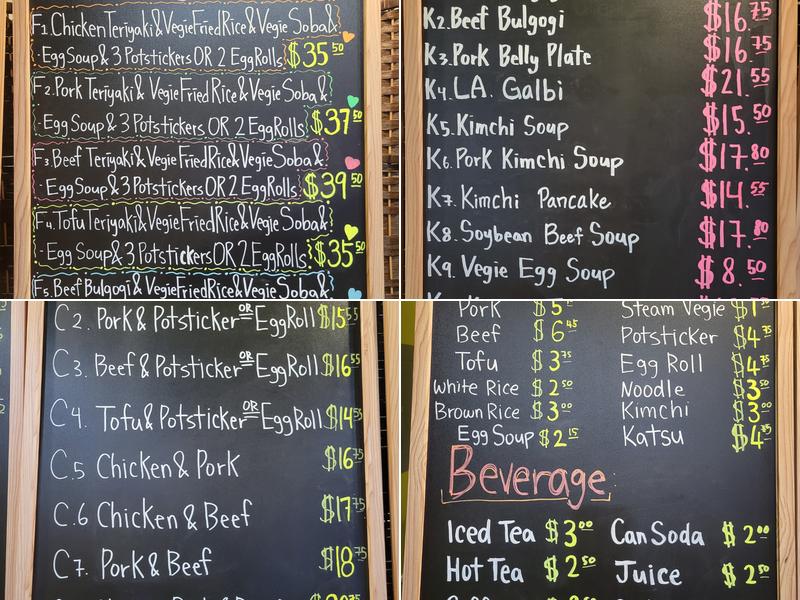 F1. Chicken Teriyaki & Vegie Fried Rice & Vegie Soba &
Egg Soup & 3 Potstickers OR 2 Egg Rolls $35 50
F2. Pork Teriyaki & Vegie Fried Rice & Vegie Soba &
Egg Soup & 3 Potstickers OR 2 Egg Rolls $37 50
F3. Beef Teriyaki & Vegie Fried Rice & Vegie Soba &
Egg Soup & 3 Potstickers OR 2 Egg Rolls $39 50
F4. Tofu Teriyaki & Vegie Fried Rice & Vegie Soba &
Egg Soup & 3 Potstickers OR 2 Egg Rolls $35 50
F5. Beef Bulgogi & Vegie Fried Rice & Vegie Soba &
K2. Beef Bulgogi $16.75
K3. Pork Belly Plate $16.75
K4. L.A. Galbi $21.55
K5. Kimchi Soup $15.50
K6. Pork Kimchi Soup $17.80
K7. Kimchi Pancake $14.55
K8. Soybean Beef Soup $17.80
K9. Vegie Egg Soup $8.50
C2. Pork & Potsticker OR Egg Roll $15 55
C3. Beef & Potsticker OR Egg Roll $16 55
C4. Tofu & Potsticker OR Egg Roll $14 55
C.5 Chicken & Pork $16 75
C.6 Chicken & Beef $17 75
C7. Pork & Beef $18 75
Pork $5 Steam Vegie
Beef $6 45 Potsticker $4 75
Tofu $3 75 Egg Roll $4 75
White Rice $2 50 Noodle $3 50
Brown Rice $3 00 Kimchi $3 00
Egg Soup $2 15 Katsu $4 75
Beverage
Iced Tea $3 00 Can Soda $2 00
Hot Tea $2 50 Juice $2 50